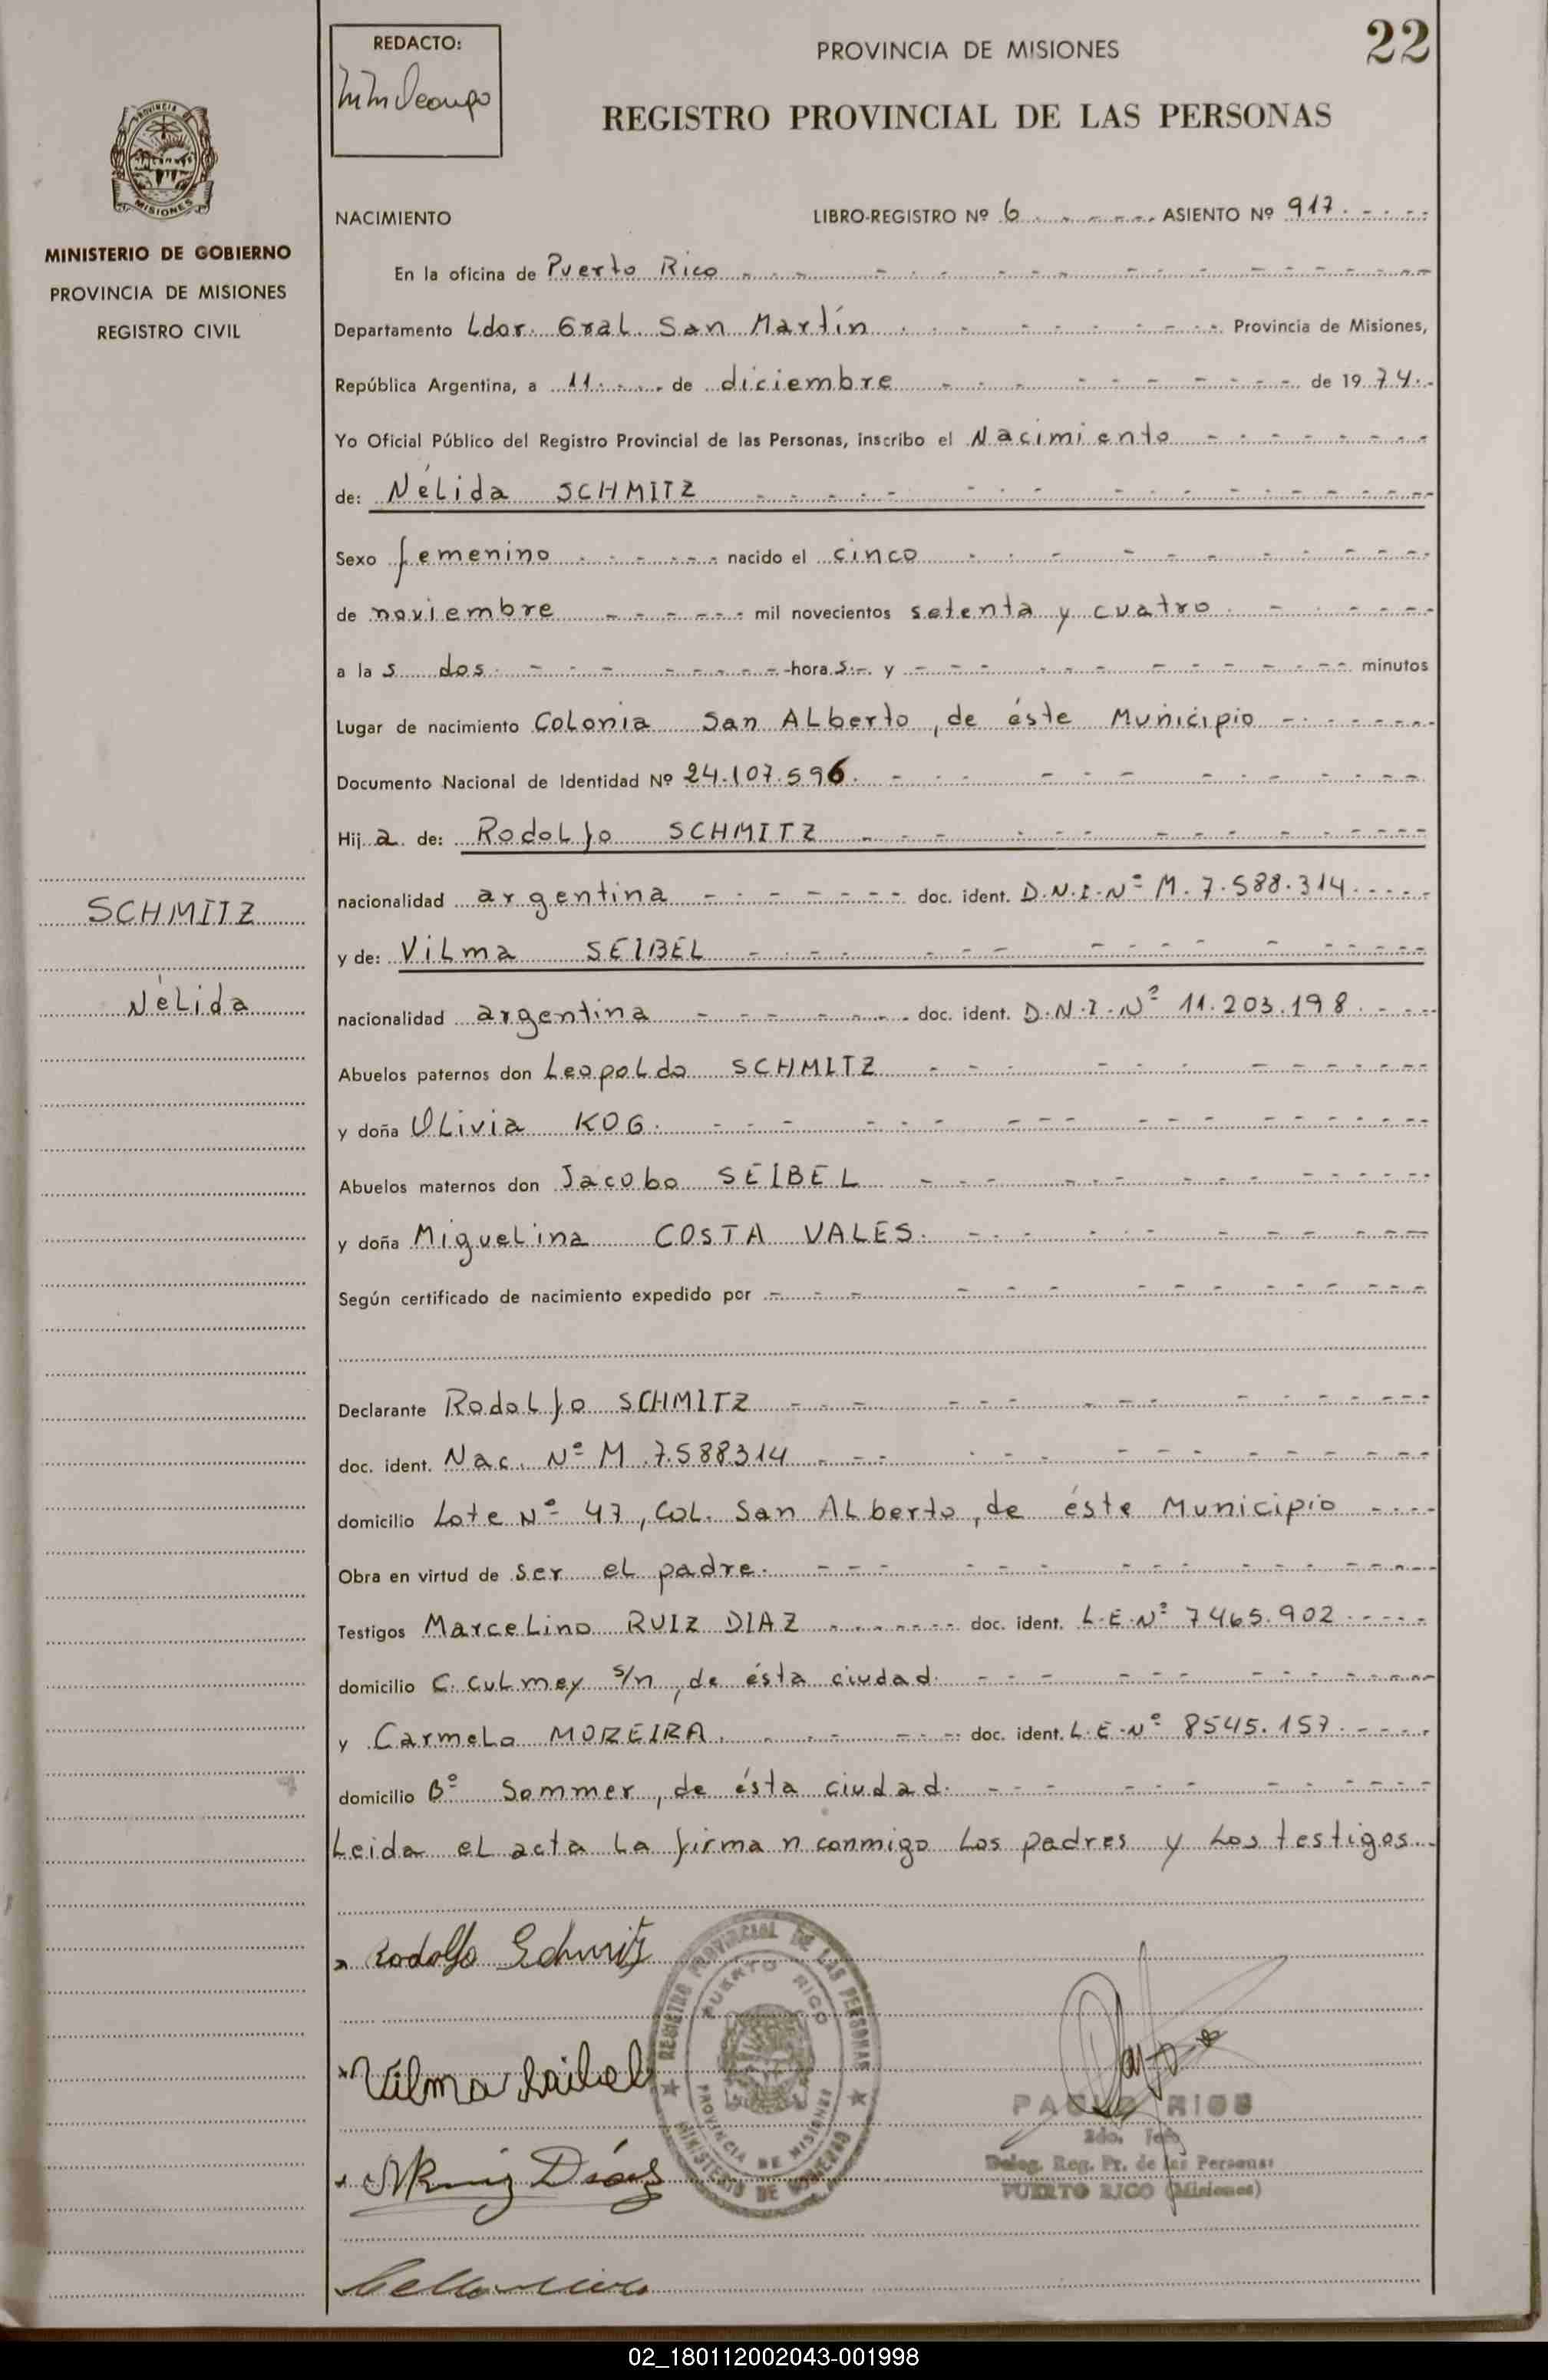 22
REDACTO:
PROVINCIA DE MISIONES
REGISTRO PROVINCIAL DE LAS PERSONAS
PROVINCIA
MISIONES
MINISTERIO DE GOBIERNO
PROVINCIA DE MISIONES
REGISTRO CIVIL
NACIMIENTO LIBRO-REGISTRO Nº 6 ASIENTO Nº 917.
En la oficina de Puerto Rico
Departamento Ldor. Gral. San Martín Provincia de Misiones,
República Argentina, a 11 de diciembre de 1974.
Yo Oficial Público del Registro Provincial de las Personas, inscribo el Nacimiento
de: Nélida SCHMITZ
Sexo femenino nacido el cinco
de noviembre mil novecientos setenta y cuatro
a las dos horas y minutos
Lugar de nacimiento Colonia San Alberto, de éste Municipio
Documento Nacional de Identidad Nº 24.107.596.
Hija de: Rodolfo SCHMITZ
nacionalidad argentina doc. ident. D.N.I. Nº M. 7.588.314.
y de: Vilma SEIBEL
nacionalidad argentina doc. ident. D.N.I. Nº 11.203.198.
Abuelos paternos don Leopoldo SCHMITZ
y doña Olivia KOG.
Abuelos maternos don Jacobo SEIBEL
y doña Miguelina COSTA VALES.
Según certificado de nacimiento expedido por
Declarante Rodolfo SCHMITZ
doc. ident. Nac. Nº M 7.588314
domicilio Lote Nº 47, Col. San Alberto, de éste Municipio
Obra en virtud de ser el padre.
Testigos Marcelino RUIZ DIAZ doc. ident. L.E. Nº 7465.902
domicilio C. Culmey s/n, de ésta ciudad.
y Carmelo MOREIRA doc. ident. L.E. Nº 8545.157.
domicilio Bº Sommer, de ésta ciudad.
Leida el acta la firman conmigo los padres y los testigos.
SCHMITZ
Nélida
Rodolfo Schmitz
Vilma Seibel
Ruiz Díaz
REGISTRO PROVINCIAL DE LAS PERSONAS
PUERTO RICO
PROVINCIA DE MISIONES
MINISTERIO DE GOBIERNO
PABLO RIOS
2do. Jefe
Deleg. Reg. Pr. de las Personas
PUERTO RICO (Misiones)
02_180112002043-001998